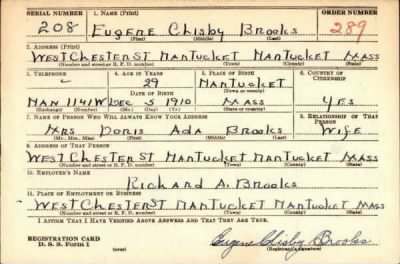 SERIAL NUMBER 1. NAME (Print) ORDER NUMBER
208 EUGENE CHISBY BROOKS 289
(First) (Middle) (Last)
2. ADDRESS (Print)
WEST CHESTER ST NANTUCKET NANTUCKET MASS
(Number and street or R. F. D. number) (Town) (County) (State)
3. TELEPHONE 4. AGE IN YEARS 5. PLACE OF BIRTH 6. COUNTRY OF CITIZENSHIP
29 NANTUCKET
DATE OF BIRTH (Town or county)
NAN 1141W DEC 5 1910 MASS YES
(Exchange) (Number) (Mo.) (Day) (Yr.) (State or country)
7. NAME OF PERSON WHO WILL ALWAYS KNOW YOUR ADDRESS 8. RELATIONSHIP OF THAT PERSON
MRS DORIS ADA BROOKS WIFE
(Mr., Mrs., Miss) (First) (Middle) (Last)
9. ADDRESS OF THAT PERSON
WEST CHESTER ST NANTUCKET NANTUCKET MASS
(Number and street or R. F. D. number) (Town) (County) (State)
10. EMPLOYER'S NAME
RICHARD A. BROOKS
11. PLACE OF EMPLOYMENT OR BUSINESS
WEST CHESTER ST NANTUCKET NANTUCKET MASS
(Number and street or R. F. D. number) (Town) (County) (State)
I AFFIRM THAT I HAVE VERIFIED ABOVE ANSWERS AND THAT THEY ARE TRUE.
REGISTRATION CARD
D. S. S. Form 1 (over) Eugene Chisby Brooks
(Registrant's signature)